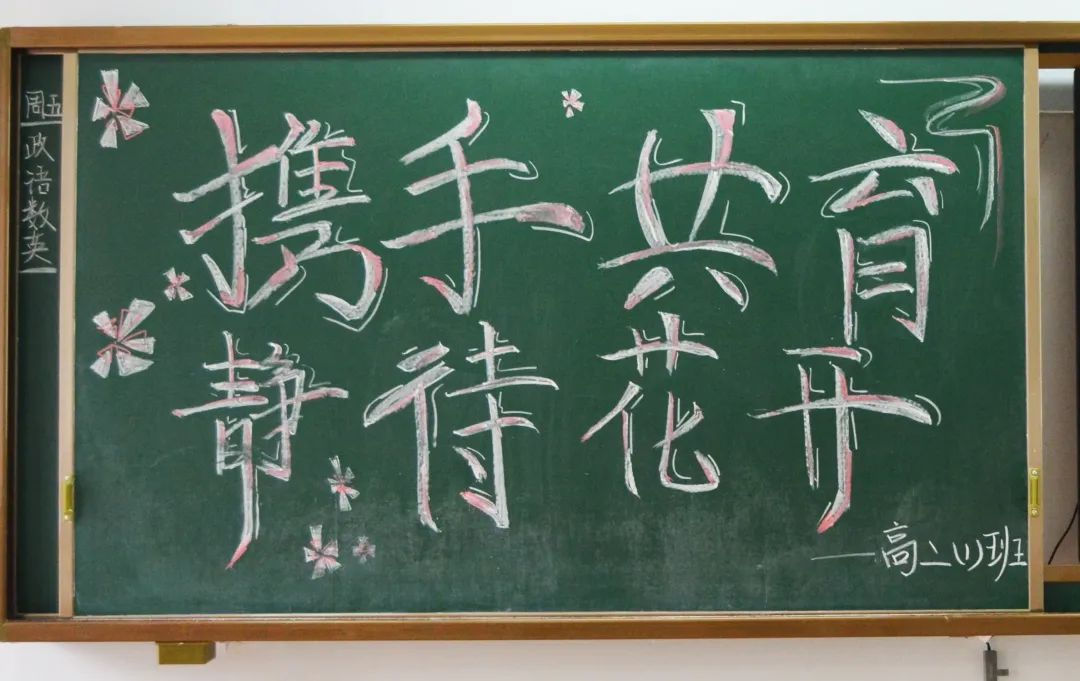 携手共育
静待花开
——高二(1)班
周五
政语数英